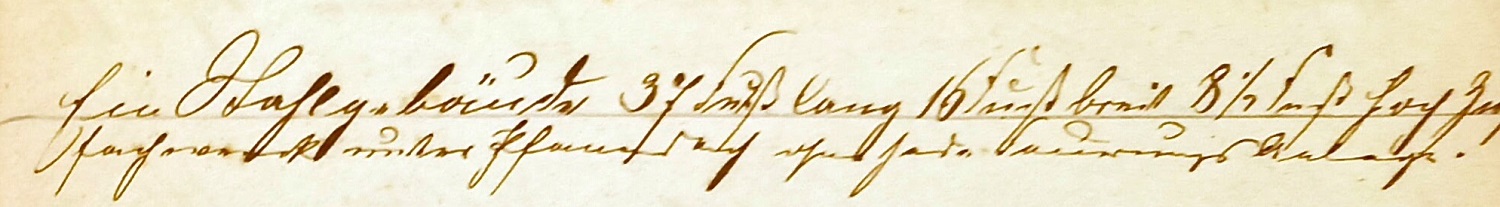 Ein Stallgebäude 37 Fuß lang 16 Fuß breit 8 1/2 Fuß hoch In
fachwerck unter Pfannendach ohne jede Feuerungs Anlage.